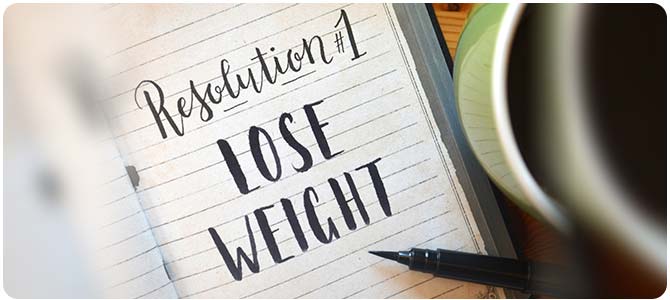 Resolution #1
LOSE
WEIGHT